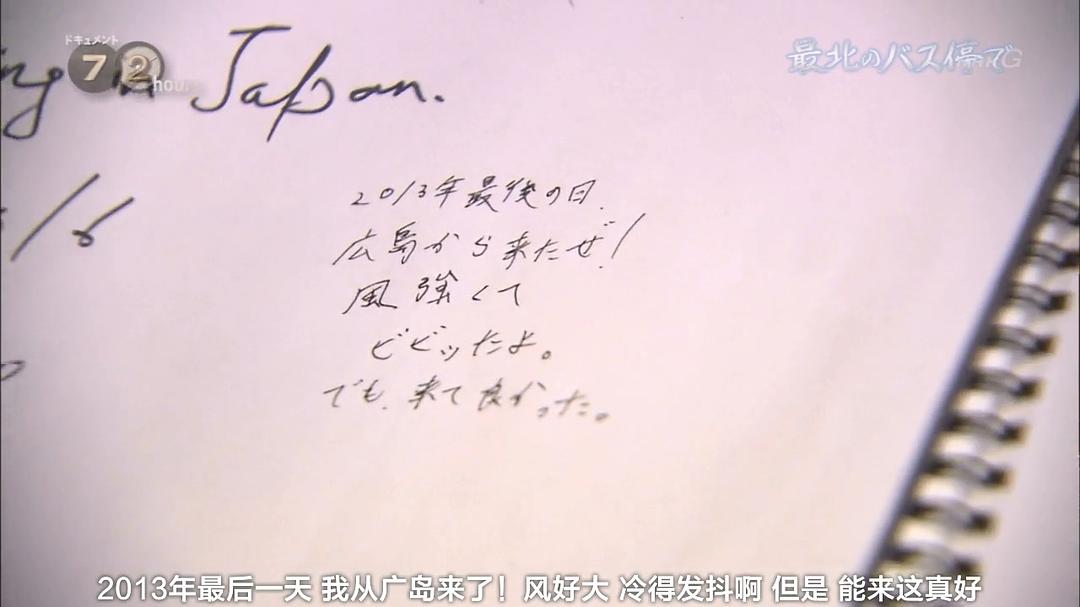 ドキュメント
72
hours
最北のバス停で
in Japan.
2013年最後の日.
広島から来たぜ!
風強くて
ビビッたよ。
でも、来て良かった。
2013年最后一天 我从广岛来了！风好大 冷得发抖啊 但是 能来这真好